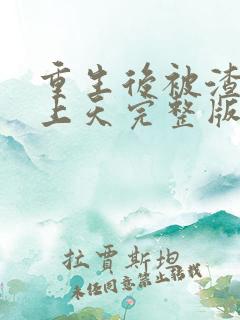 重生後被渣
上天完整版
拉賈斯坦
未任同意禁止轉載